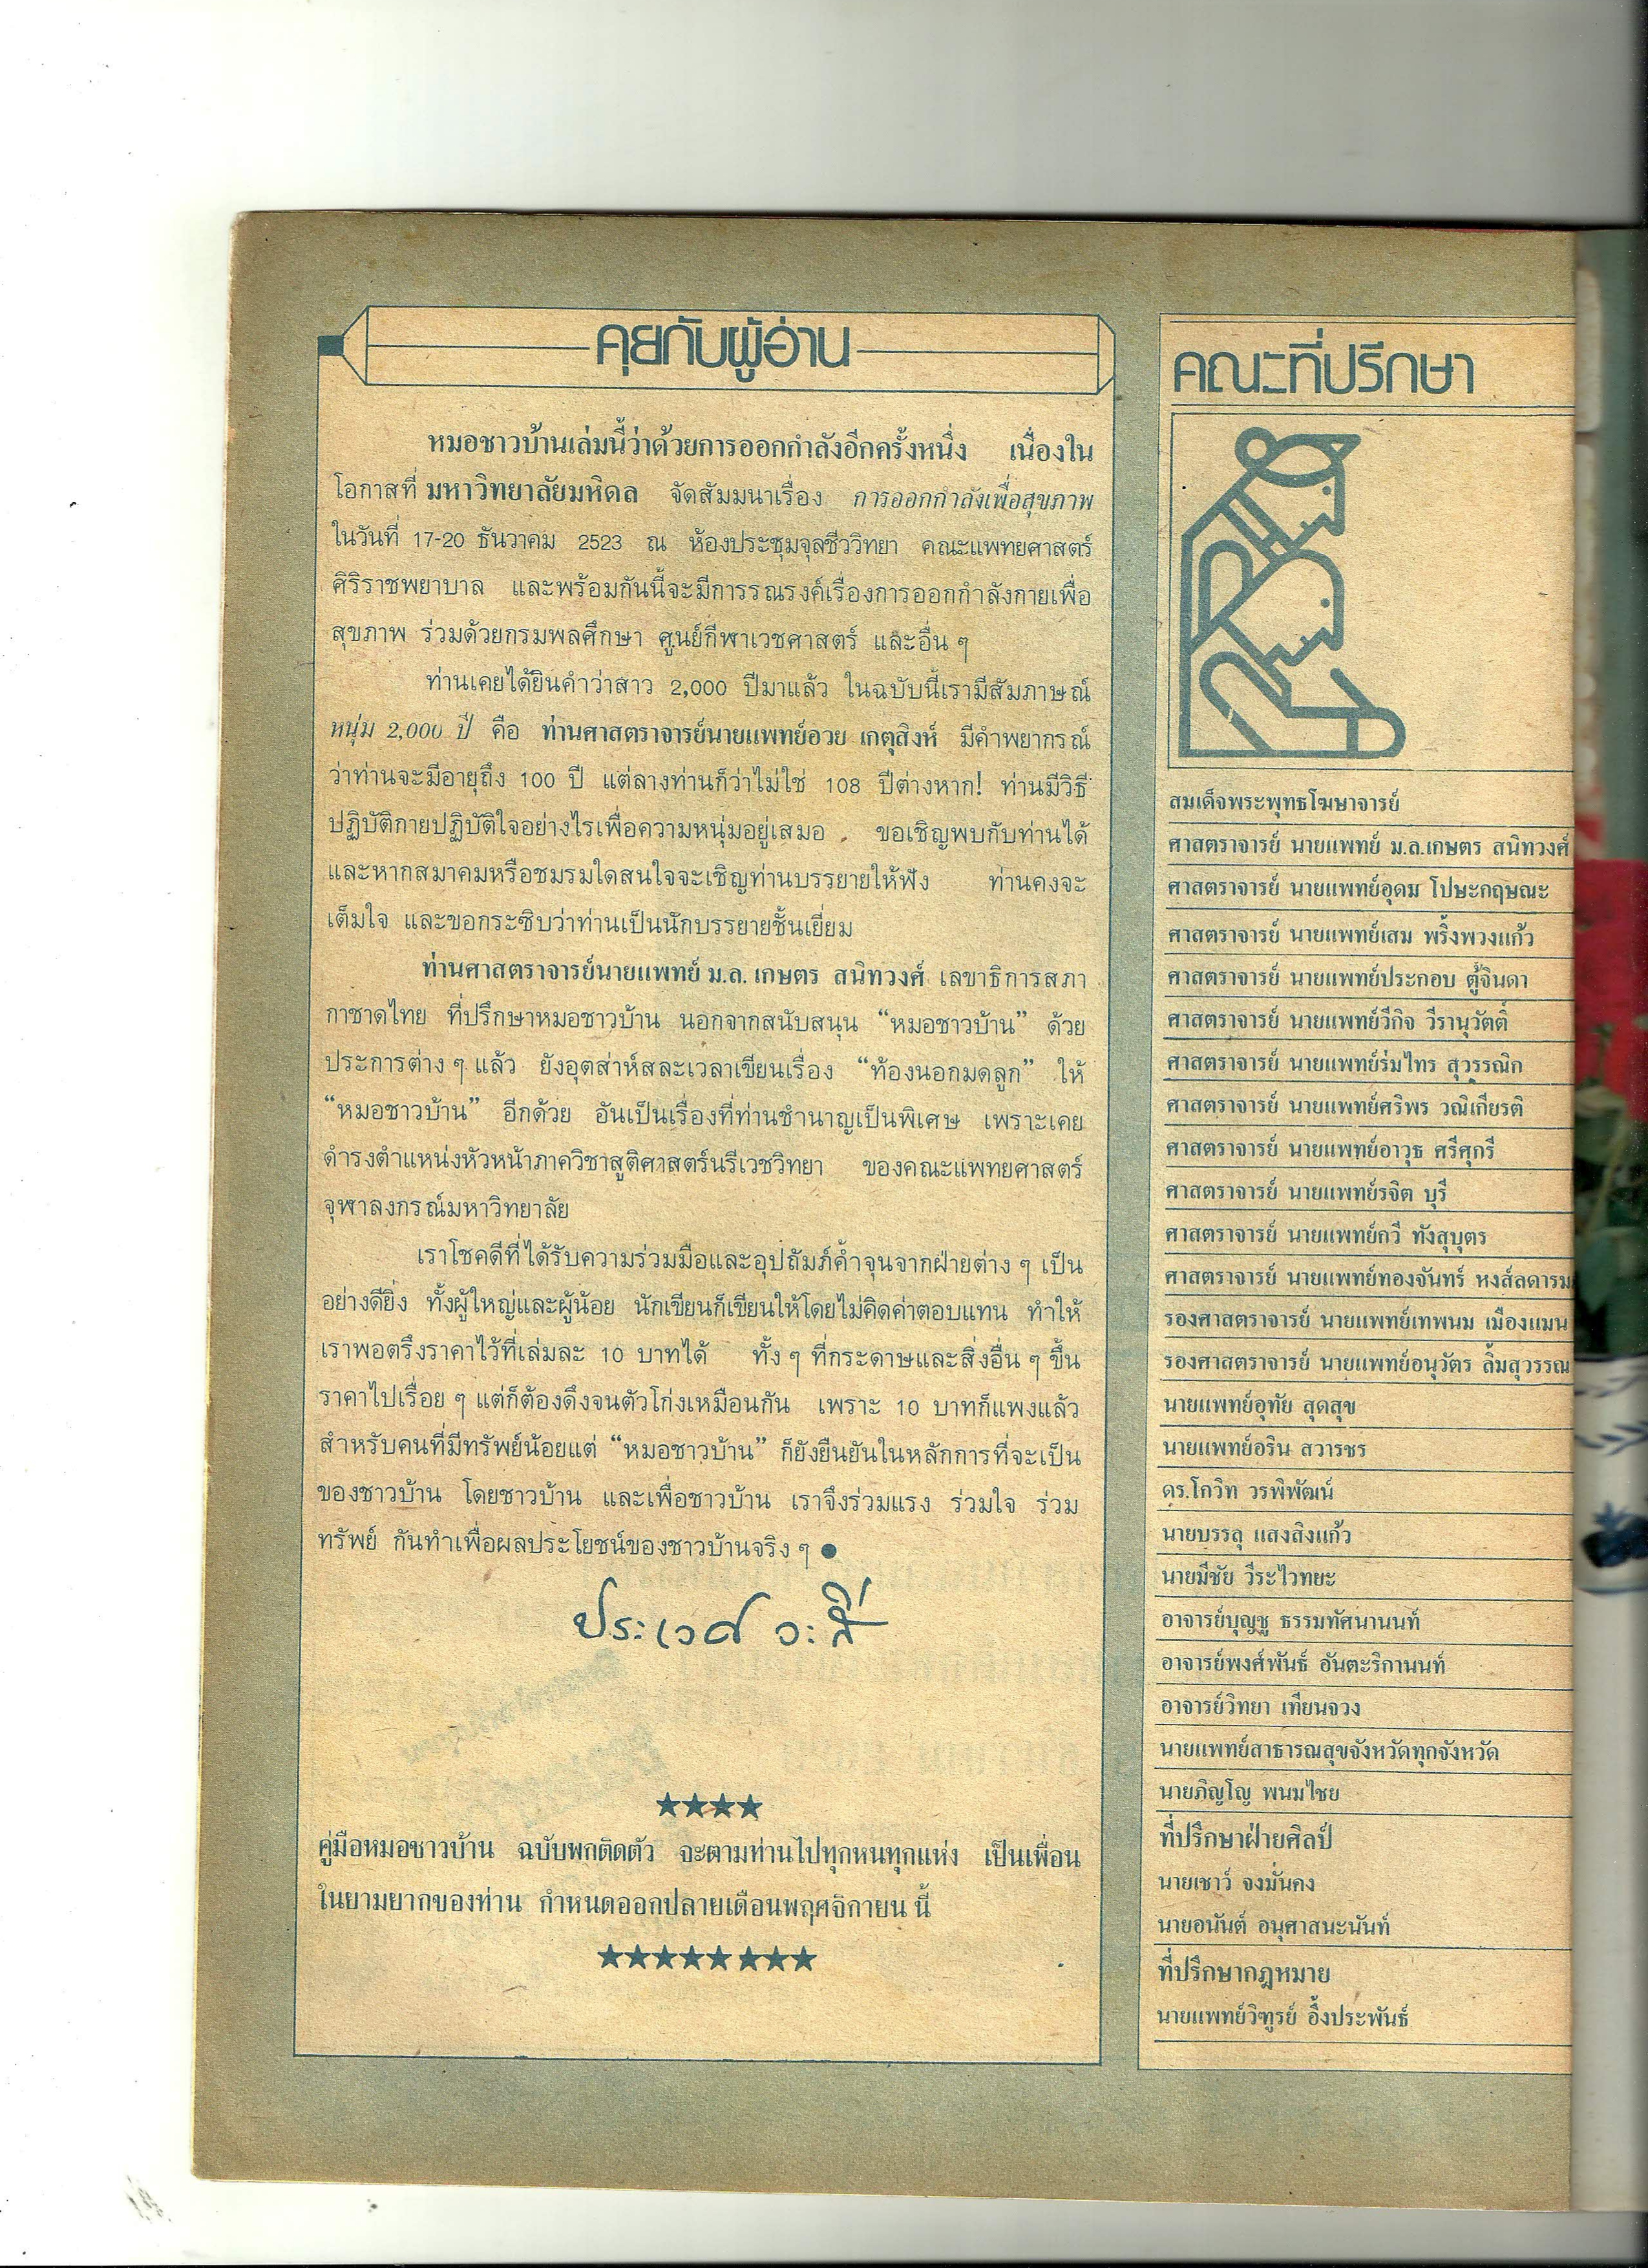 คุยกับผู้อ่าน
หมอชาวบ้านเล่มนี้ว่าด้วยการออกกำลังอีกครั้งหนึ่ง เนื่องใน
โอกาสที่ มหาวิทยาลัยมหิดล จัดสัมมนาเรื่อง การออกกำลังเพื่อสุขภาพ
ในวันที่ 17-20 ธันวาคม 2523 ณ ห้องประชุมจุลชีววิทยา คณะแพทยศาสตร์
ศิริราชพยาบาล และพร้อมกันนี้จะมีการรณรงค์เรื่องการออกกำลังกายเพื่อ
สุขภาพ ร่วมด้วยกรมพลศึกษา ศูนย์กีฬาเวชศาสตร์ และอื่น ๆ
ท่านเคยได้ยินคำว่าสาว 2,000 ปีมาแล้ว ในฉบับนี้เรามีสัมภาษณ์
หนุ่ม 2,000 ปี คือ ท่านศาสตราจารย์นายแพทย์อวย เกตุสิงห์ มีคำพยากรณ์
ว่าท่านจะมีอายุถึง 100 ปี แต่ลางท่านก็ว่าไม่ใช่ 108 ปีต่างหาก! ท่านมีวิธี
ปฏิบัติกายปฏิบัติใจอย่างไรเพื่อความหนุ่มอยู่เสมอ ขอเชิญพบกับท่านได้
และหากสมาคมหรือชมรมใดสนใจจะเชิญท่านบรรยายให้ฟัง ท่านคงจะ
เต็มใจ และขอกระซิบว่าท่านเป็นนักบรรยายชั้นเยี่ยม
ท่านศาสตราจารย์นายแพทย์ ม.ล. เกษตร สนิทวงศ์ เลขาธิการสภา
กาชาดไทย ที่ปรึกษาหมอชาวบ้าน นอกจากสนับสนุน “หมอชาวบ้าน” ด้วย
ประการต่าง ๆ แล้ว ยังอุตส่าห์สละเวลาเขียนเรื่อง “ท้องนอกมดลูก” ให้
“หมอชาวบ้าน” อีกด้วย อันเป็นเรื่องที่ท่านชำนาญเป็นพิเศษ เพราะเคย
ดำรงตำแหน่งหัวหน้าภาควิชาสูติศาสตร์นรีเวชวิทยา ของคณะแพทยศาสตร์
จุฬาลงกรณ์มหาวิทยาลัย
เราโชคดีที่ได้รับความร่วมมือและอุปถัมภ์ค้ำจุนจากฝ่ายต่าง ๆ เป็น
อย่างดียิ่ง ทั้งผู้ใหญ่และผู้น้อย นักเขียนก็เขียนให้โดยไม่คิดค่าตอบแทน ทำให้
เราพอตรึงราคาไว้ที่เล่มละ 10 บาทได้ ทั้ง ๆ ที่กระดาษและสิ่งอื่น ๆ ขึ้น
ราคาไปเรื่อย ๆ แต่ก็ต้องดึงจนตัวโก่งเหมือนกัน เพราะ 10 บาทก็แพงแล้ว
สำหรับคนที่มีทรัพย์น้อยแต่ “หมอชาวบ้าน” ก็ยังยืนยันในหลักการที่จะเป็น
ของชาวบ้าน โดยชาวบ้าน และเพื่อชาวบ้าน เราจึงร่วมแรง ร่วมใจ ร่วม
ทรัพย์ กันทำเพื่อผลประโยชน์ของชาวบ้านจริง ๆ ●
ประเวศ วะสี
★★★★
คู่มือหมอชาวบ้าน ฉบับพกติดตัว จะตามท่านไปทุกหนทุกแห่ง เป็นเพื่อน
ในยามยากของท่าน กำหนดออกปลายเดือนพฤศจิกายน นี้
★★★★★★★★
คณะที่ปรึกษา
สมเด็จพระพุทธโฆษาจารย์
ศาสตราจารย์ นายแพทย์ ม.ล.เกษตร สนิทวงศ์
ศาสตราจารย์ นายแพทย์อุดม โปษะกฤษณะ
ศาสตราจารย์ นายแพทย์เสม พริ้งพวงแก้ว
ศาสตราจารย์ นายแพทย์ประกอบ ตู้จินดา
ศาสตราจารย์ นายแพทย์วีกิจ วีรานุวัตติ์
ศาสตราจารย์ นายแพทย์ร่มไทร สุวรรณิก
ศาสตราจารย์ นายแพทย์ศริพร วณิเกียรติ
ศาสตราจารย์ นายแพทย์อาวุธ ศรีศุกรี
ศาสตราจารย์ นายแพทย์รจิต บุรี
ศาสตราจารย์ นายแพทย์กวี ทังสุบุตร
ศาสตราจารย์ นายแพทย์ทองจันทร์ หงส์ลดารม
รองศาสตราจารย์ นายแพทย์เทพนม เมืองแมน
รองศาสตราจารย์ นายแพทย์อนุวัตร ลิ้มสุวรรณ
นายแพทย์อุทัย สุดสุข
นายแพทย์อริน สวารชร
ดร.โกวิท วรพิพัฒน์
นายบรรลุ แสงสิงแก้ว
นายมีชัย วีระไวทยะ
อาจารย์บุญชู ธรรมทัศนานนท์
อาจารย์พงศ์พันธ์ อันตะริกานนท์
อาจารย์วิทยา เทียนจวง
นายแพทย์สาธารณสุขจังหวัดทุกจังหวัด
นายภิญโญ พนมไชย
ที่ปรึกษาฝ่ายศิลป์
นายเชาว์ จงมั่นคง
นายอนันต์ อนุศาสนะนันท์
ที่ปรึกษากฎหมาย
นายแพทย์วิฑูรย์ อึ้งประพันธ์